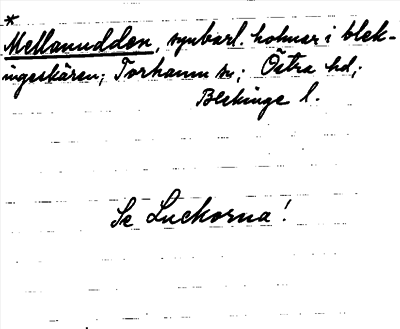 *
Mellanudden, synbarl. holmar i blek-
ingeskären; Torhamn sn; Östra hd;
Blekinge l.
Se Luckorna!